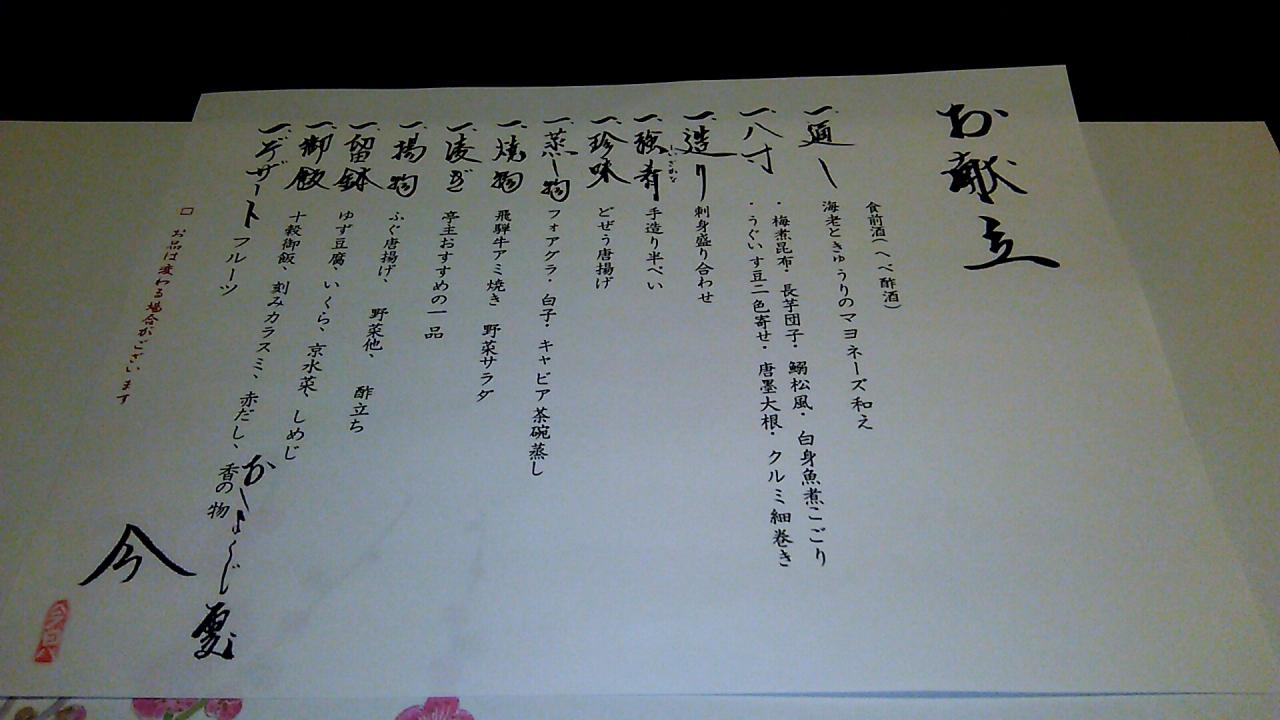 お献立
食前酒(へべ酢酒)
一、通し 海老ときゅうりのマヨネーズ和え
一、八寸 ・梅煮昆布・長芋団子・鰯松風・白身魚煮こごり
・うぐいす豆二色寄せ・唐墨大根・クルミ細巻き
一、造り 刺身盛り合わせ
一、強肴 手造り半ぺい
一、珍味 どぜう唐揚げ
一、蒸し物 フォアグラ・白子・キャビア茶碗蒸し
一、焼物 飛騨牛アミ焼き 野菜サラダ
一、凌ぎ 亭主おすすめの一品
一、揚物 ふぐ唐揚げ、野菜他、酢立ち
一、留鉢 ゆず豆腐、いくら、京水菜、しめじ
一、御飯 十穀御飯、刻みカラスミ、赤だし、香の物
一、デザート フルーツ
□ お品は変わる場合がございます
今